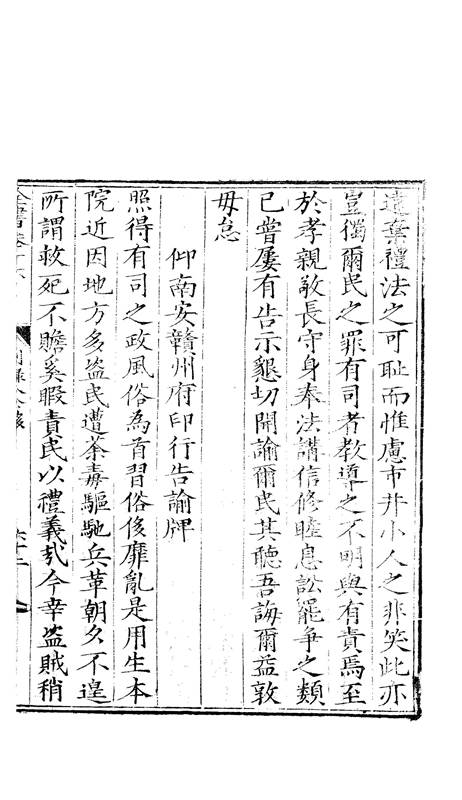 遺棄禮法之可耻而惟慮市井小人之非笑此亦
豈獨爾民之罪有司者教導之不明與有責焉至
於孝親敬長守身奉法講信修睦息訟罷爭之類
已嘗屢有告示懇切開諭爾民其聽吾誨爾益敦
毋怠
仰南安贛州府印行告諭牌
照得有司之政風俗為首習俗侈靡亂是用生本
院近因地方多盗民遭荼毒驅馳兵革朝夕不遑
所謂救死不贍奚暇責民以禮義㢤今幸盗賊稍